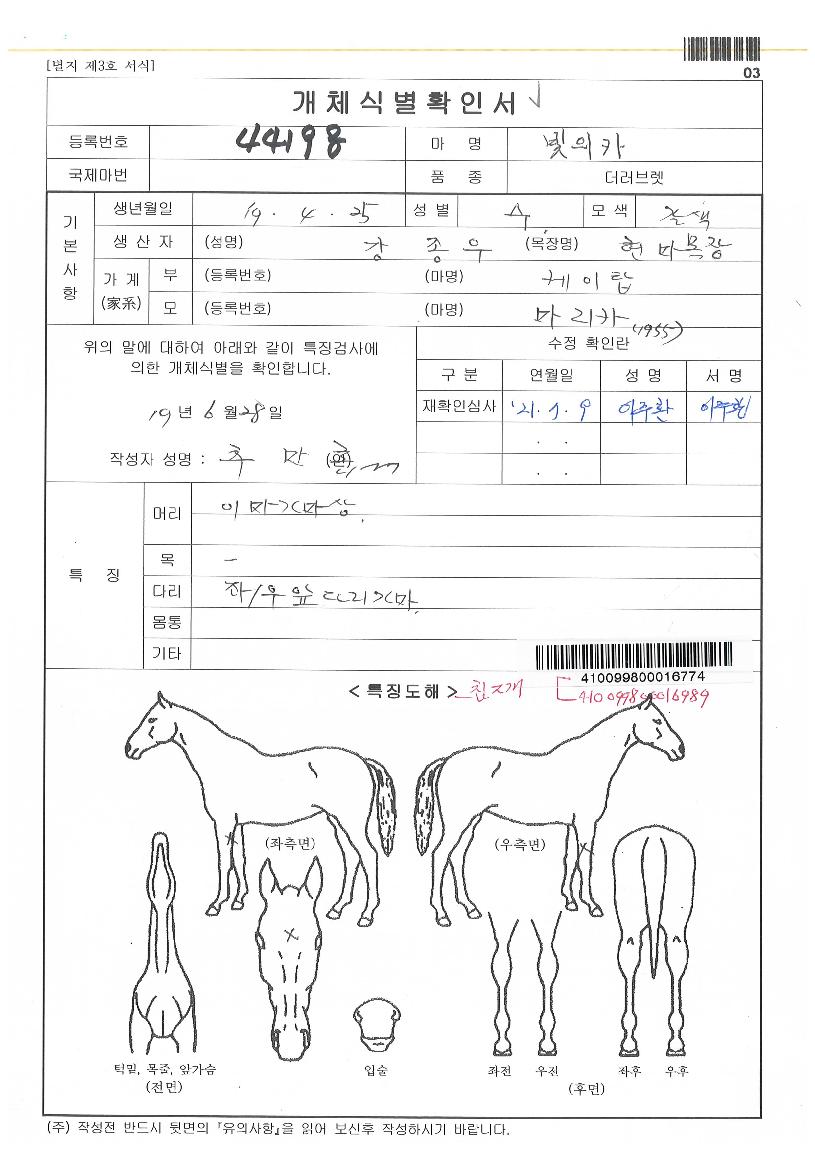 [별지 제3호 서식]
03
개체식별확인서 √
등록번호 44198 마 명 빛의카
국제마번 품 종 더러브렛
기본사항
생년월일 19 . 4 . 25 성별 수 모색 갈색
생산자 (성명) 강종우 (목장명) 현마목장
가계 (家系) 부 (등록번호) (마명) 케이탑
모 (등록번호) (마명) 마리카 (1955)
위의 말에 대하여 아래와 같이 특징검사에
의한 개체식별을 확인합니다.
19년 6월 28일
작성자 성명 : 추 만 (인)
수정 확인란
구 분 연월일 성 명 서 명
재확인심사 '21. 1. 9 이주환 이주환
. .
. .
특 징
머리 이마>X마상.
목 -
다리 좌/우 앞다리X마.
몸통
기타
410099800016774
< 특징도해 > 칩2개 410099800016989
(좌측면) (우측면)
턱밑, 목줄, 앞가슴 입술 좌전 우전 좌후 우후
(전면) (후면)
(주) 작성전 반드시 뒷면의 『유의사항』을 읽어 보신후 작성하시기 바랍니다.